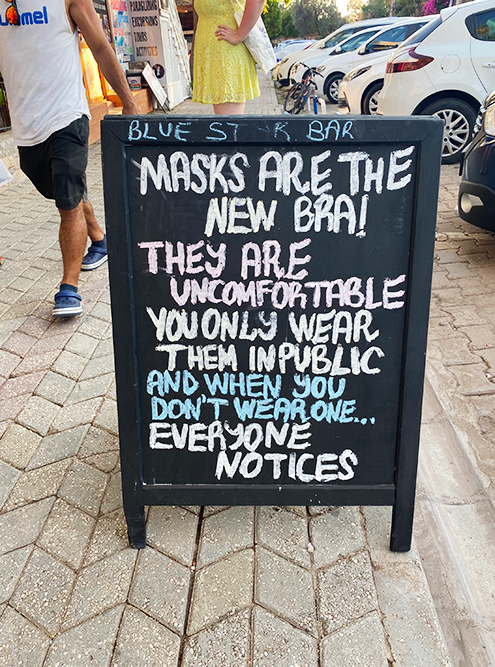 umel
PARAGLIDING
EXCURSIONS
TOURS
ACTIVITIES
BLUE ST K BAR
MASKS ARE THE
NEW BRA!
THEY ARE
UNCOMFORTABLE
YOU ONLY WEAR
THEM IN PUBLIC
AND WHEN YOU
DON'T WEAR ONE...
EVERYONE
NOTICES